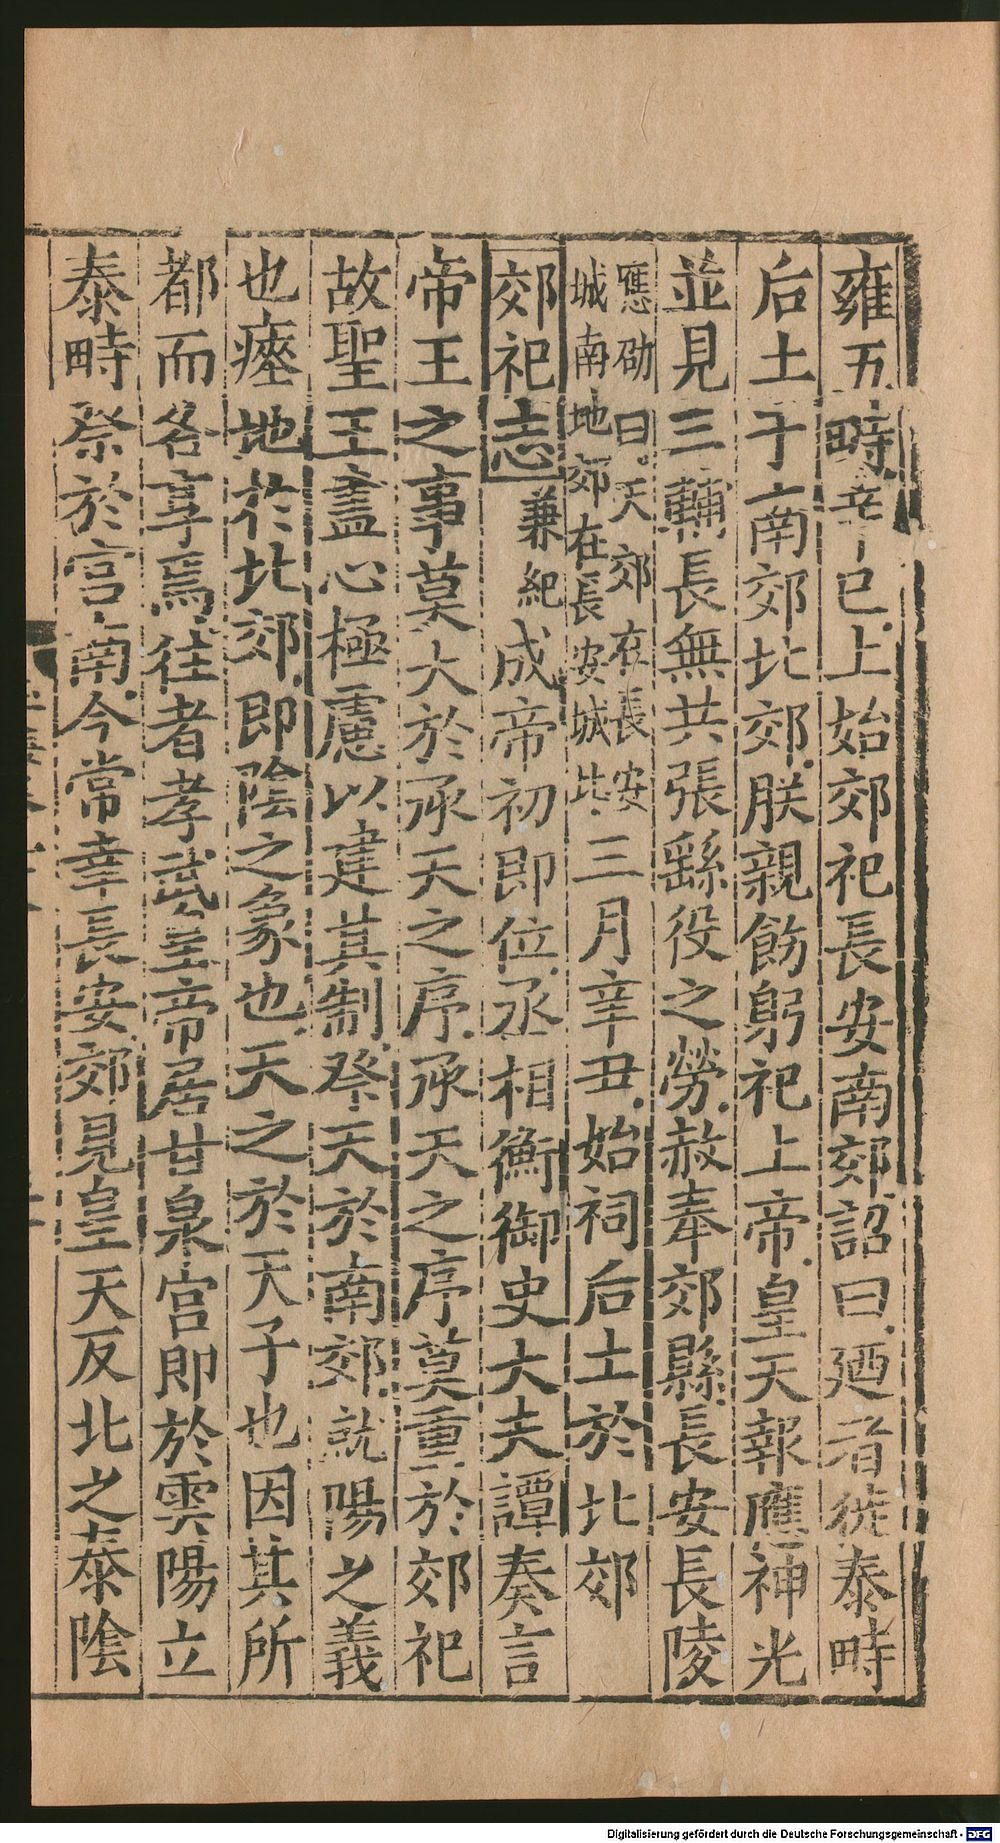 雍五畤辛巳上始郊祀長安南郊詔曰廼者徙泰畤
后土于南郊北郊朕親飭躬祀上帝皇天報應神光
並見三輔長無共張繇役之勞赦奉郊縣長安長陵
應劭曰天郊在長安
城南地郊在長安城北三月辛丑始祠后土於北郊
郊祀志兼紀成帝初即位丞相衡御史大夫譚奏言
帝王之事莫大於承天之序承天之序莫重於郊祀
故聖王盡心極慮以建其制祭天於南郊就陽之義
也瘞地於北郊即陰之象也天之於天子也因其所
都而各享焉往者孝武皇帝居甘泉宫即於雲陽立
泰畤祭於宫南今常幸長安郊見皇天反北之泰陰
Digitalisierung gefördert durch die Deutsche Forschungsgemeinschaft - DFG